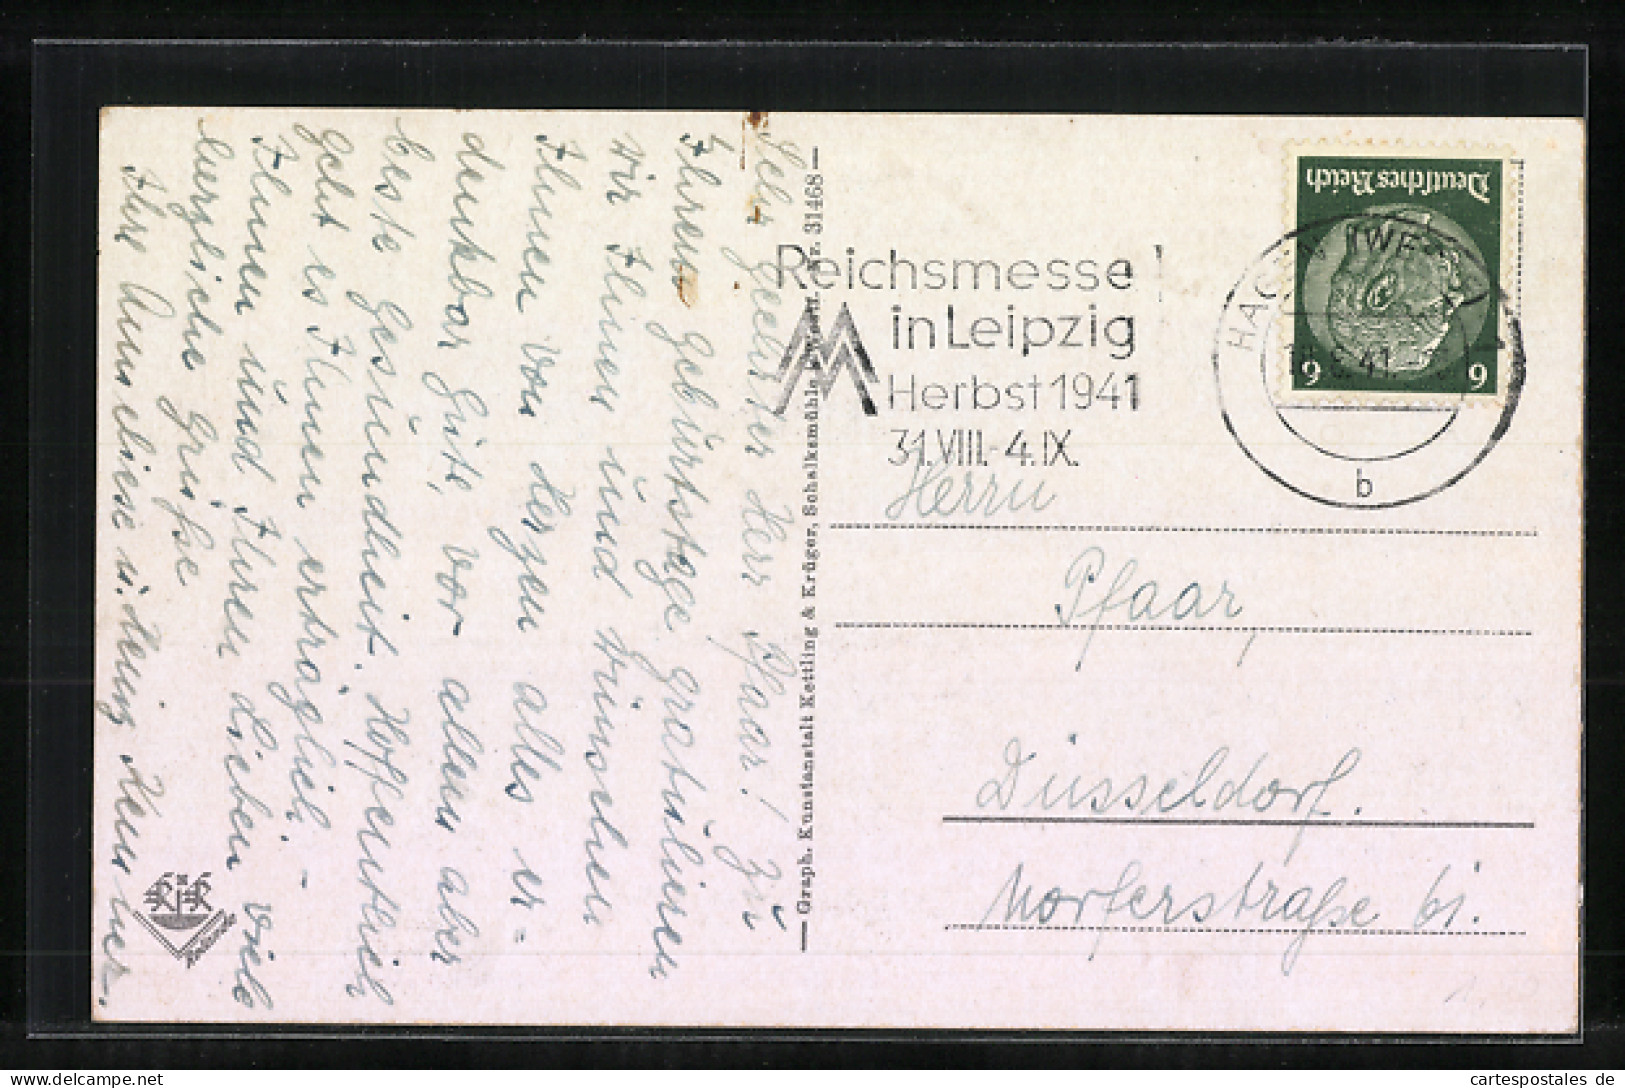 Sehr geehrter Herr Pfaar! Zu
Ihrem Gebürtstage gratulieren
wir Ihnen und wünschen
Ihnen von Herzen alles er-
denkbar Gute, vor allem aber
beste Gesundheit. Hoffentlich
geht es Ihnen erträglich. -
Ihnen und Ihren Lieben viele
herzliche Grüße
Ihre Anneliese u. Heinz Kemmer.
— Graph. Kunstanstalt Kettling & Krüger, Schalksmühle Nr. 31468 —
Reichsmesse
in Leipzig
Herbst 1941
31.VIII.-4.IX.
Deutsches Reich
6 6
HAGEN (WESTF)
41
b
Herrn
Pfaar,
Düsseldorf.
Morferstraße 61.
cartespostales de